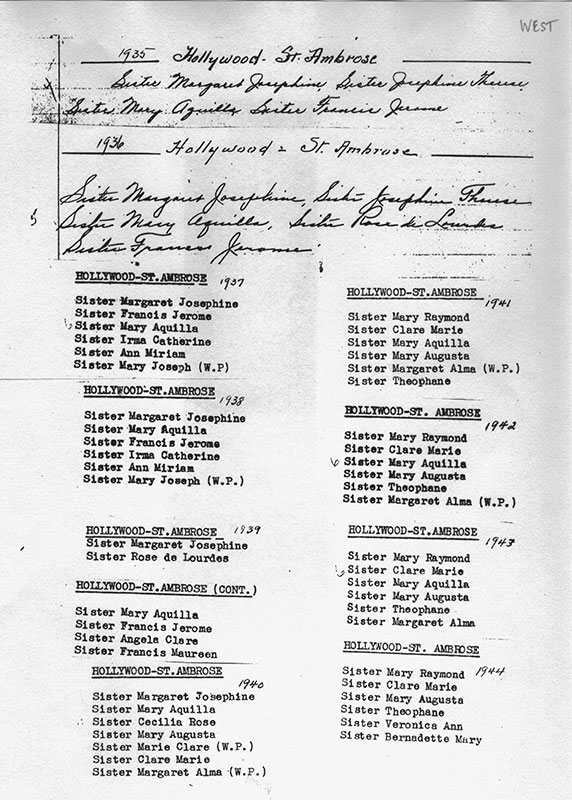 WEST
1935 Hollywood - St. Ambrose
Sister Margaret Josephine, Sister Josephine Therese,
Sister Mary Aquilla Sister Francis Jerome
1936 Hollywood - St. Ambrose
Sister Margaret Josephine, Sister Josephine Therese
Sister Mary Aquilla, Sister Rose de Lourdes
Sister Francis Jerome
HOLLYWOOD-ST.AMBROSE 1937
Sister Margaret Josephine
Sister Francis Jerome
Sister Mary Aquilla
Sister Irma Catherine
Sister Ann Miriam
Sister Mary Joseph (W.P)
HOLLYWOOD-ST.AMBROSE
1938
Sister Margaret Josephine
Sister Mary Aquilla
Sister Francis Jerome
Sister Irma Catherine
Sister Ann Miriam
Sister Mary Joseph (W.P.)
HOLLYWOOD-ST.AMBROSE 1939
Sister Margaret Josephine
Sister Rose de Lourdes
HOLLYWOOD-ST.AMBROSE (CONT.)
Sister Mary Aquilla
Sister Francis Jerome
Sister Angela Clare
Sister Francis Maureen
HOLLYWOOD-ST.AMBROSE
1940
Sister Margaret Josephine
Sister Mary Aquilla
Sister Cecilia Rose
Sister Mary Augusta
Sister Marie Clare (W.P.)
Sister Clare Marie
Sister Margaret Alma (W.P.)
HOLLYWOOD-ST.AMBROSE
1941
Sister Mary Raymond
Sister Clare Marie
Sister Mary Aquilla
Sister Mary Augusta
Sister Margaret Alma (W.P.)
Sister Theophane
HOLLYWOOD-ST. AMBROSE
1942
Sister Mary Raymond
Sister Clare Marie
Sister Mary Aquilla
Sister Mary Augusta
Sister Theophane
Sister Margaret Alma (W.P.)
HOLLYWOOD-ST.AMBROSE
1943
Sister Mary Raymond
Sister Clare Marie
Sister Mary Aquilla
Sister Mary Augusta
Sister Theophane
Sister Margaret Alma
HOLLYWOOD-ST. AMBROSE
Sister Mary Raymond 1944
Sister Clare Marie
Sister Mary Augusta
Sister Theophane
Sister Veronica Ann
Sister Bernadette Mary